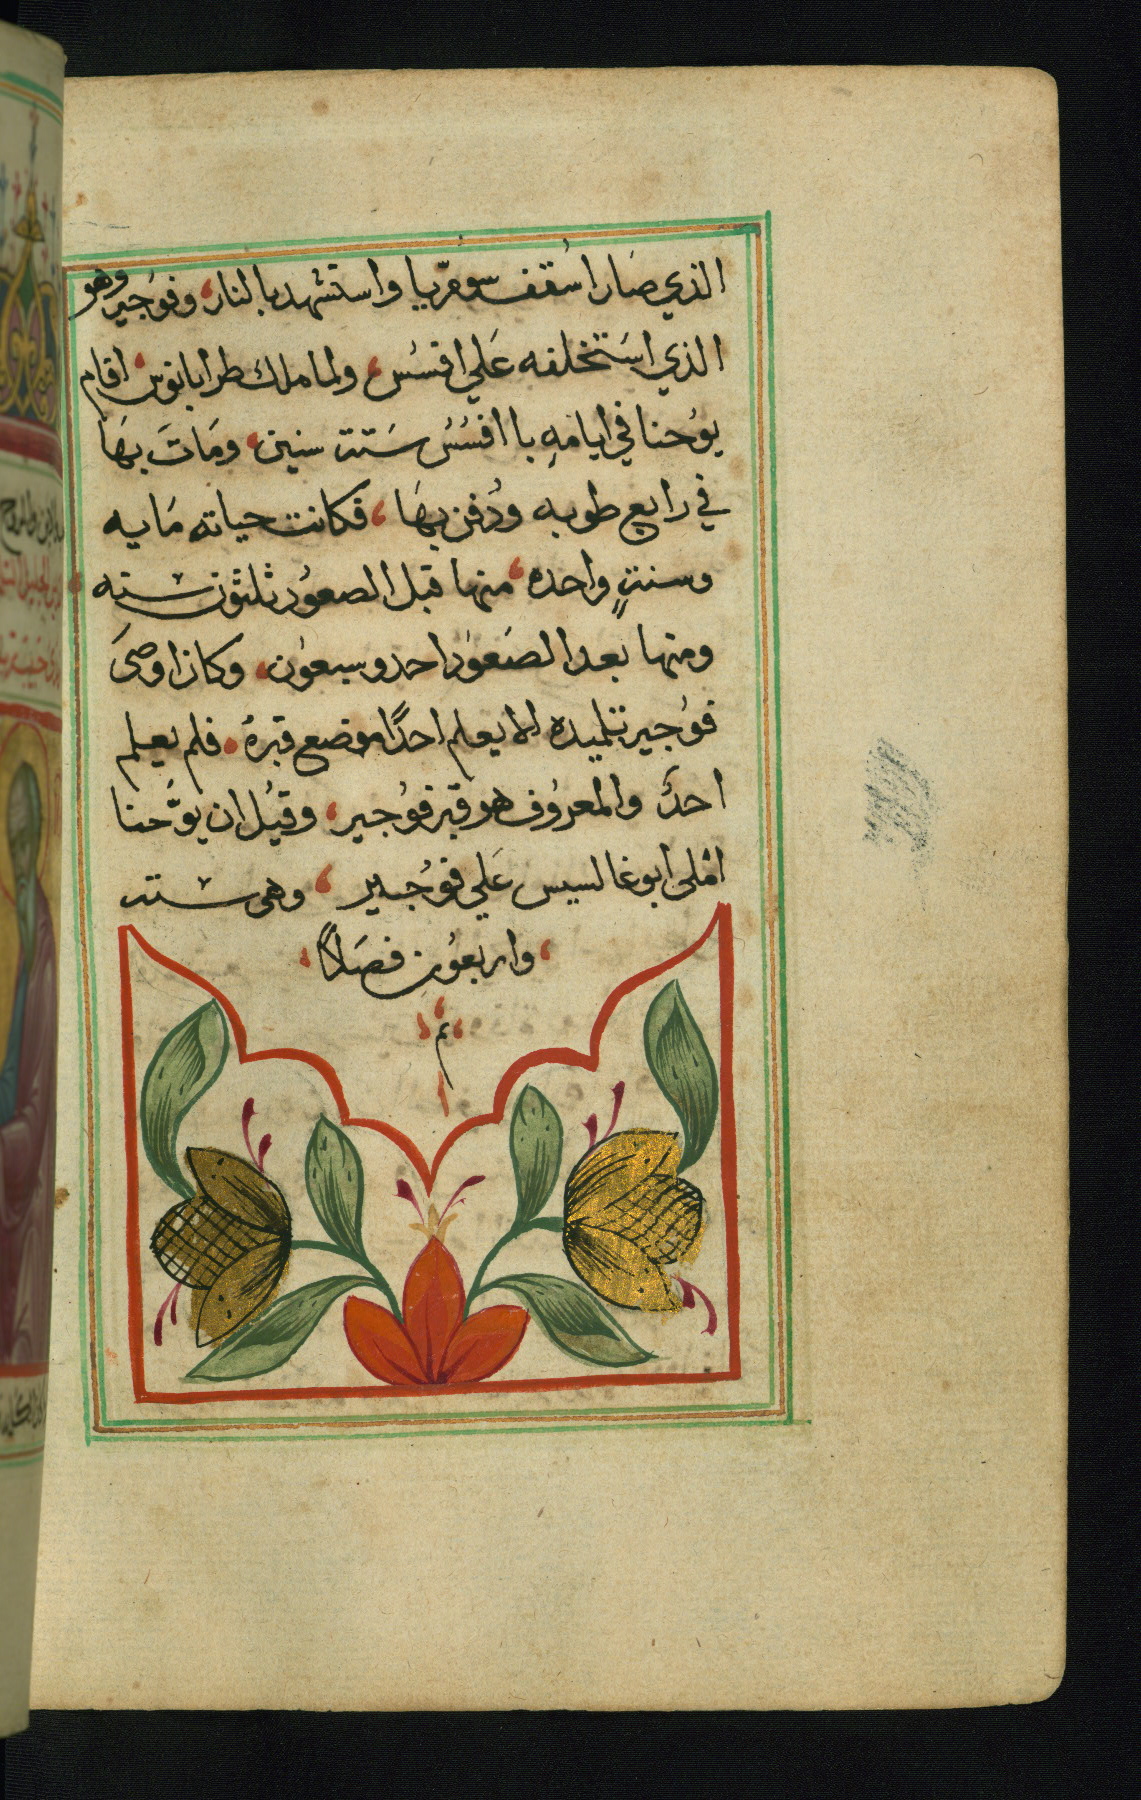 الذي صَار اسُقف سومرّيا واستشهد بالنار، وفوُجير وهو
الذي استَخلفه عَلي افسُس، ولما ملك طرابانوس، اقام
يوُحنا في ايامهِ باافسُسُ سَتة سنين، ومَاتَ بهَا
في رابع طوبه ودُفن بهَا، فكانت حياته مَايه
وسنةٍ واحده، منها قبل الصعوُد ثلثون سَنه
ومنها بعد الصَعوُد احد وسبعوُن، وكان اوصَي
فوُجير تلميده الا يعلم احدًا موضع قبرهُ. فلم يعلم
احدَ والمعروُف هو قبر فوُجير، وقيُل ان يوُحنا
املى ابوغالسيس عَلي فوُجير، وهي ستة
واربعوُن فصَلاً
تم